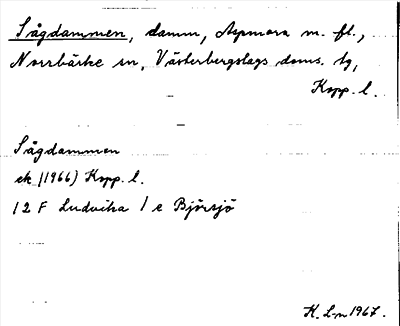 Sågdammen, damm, Aspmora m. fl.,
Norrbärke sn, Västerbergslags doms. tg,
Kopp. l.
Sågdammen
ek (1966) Kopp. l.
12 F Ludvika 1 e Björsjö
K. L-n 1967.